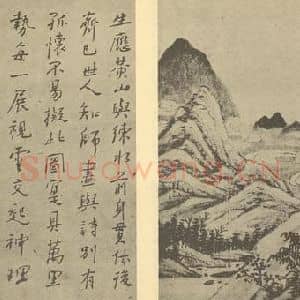 生應黃山與練水前身貫休後
齊己世人知師畫與詩別有
孤懷不易擬此圖是具萬里
勢每一展視雲起神理
Shufawang.CN